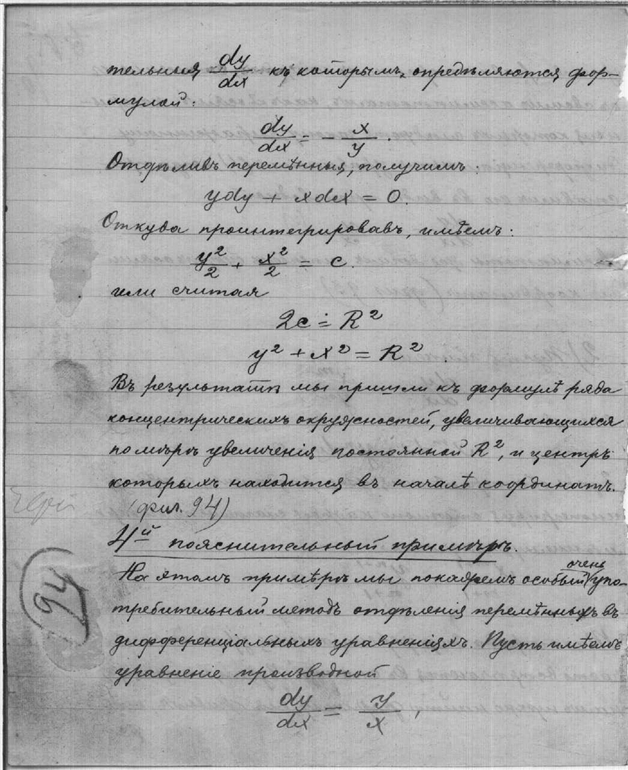 тельныя, dy/dx къ которымъ, опредѣляются, фор-
мулой:
dy/dx = - x/y.
Отдѣливъ перемѣнныя, получимъ:
ydy + xdx = 0.
Откуда проинтегрировавъ, имѣемъ:
y²/2 + x²/2 = c.
или считая
2c = R²
y² + x² = R²
Въ результатѣ мы пришли къ формулѣ ряда
концентрическихъ окружностей, увеличивающихся
по мѣрѣ увеличенія постоянной R², и центръ
которыхъ находится въ началѣ координатъ.
(фиг. 94)
4й пояснительный примѣръ.
очень
На этомъ примѣрѣ мы покажемъ особый упо-
94
требительный методъ отдѣленія перемѣнныхъ въ
дифференціальныхъ уравненіяхъ. Пусть имѣемъ
уравненіе производной
dy/dx = y/x,